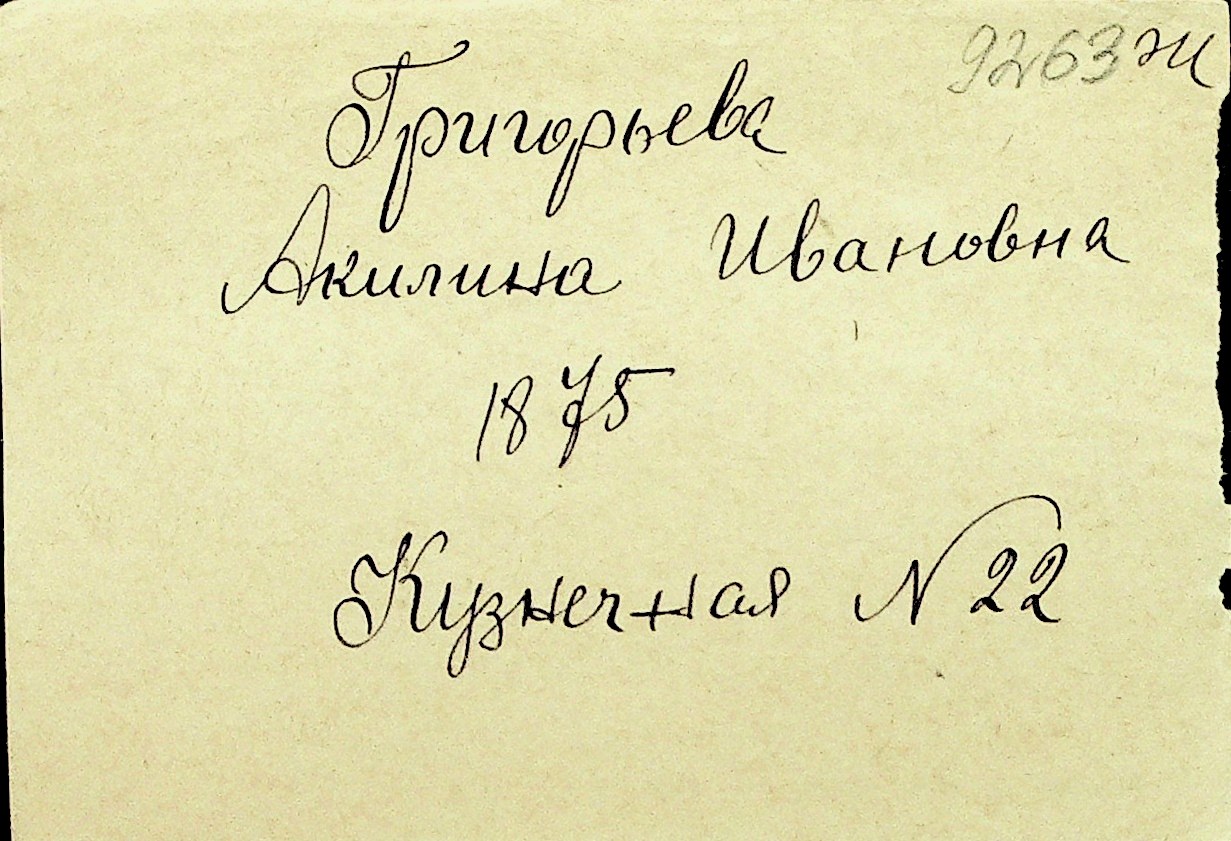 9263 Ж
Григорьева
Акилина Ивановна
1875
Кузнечная N 22